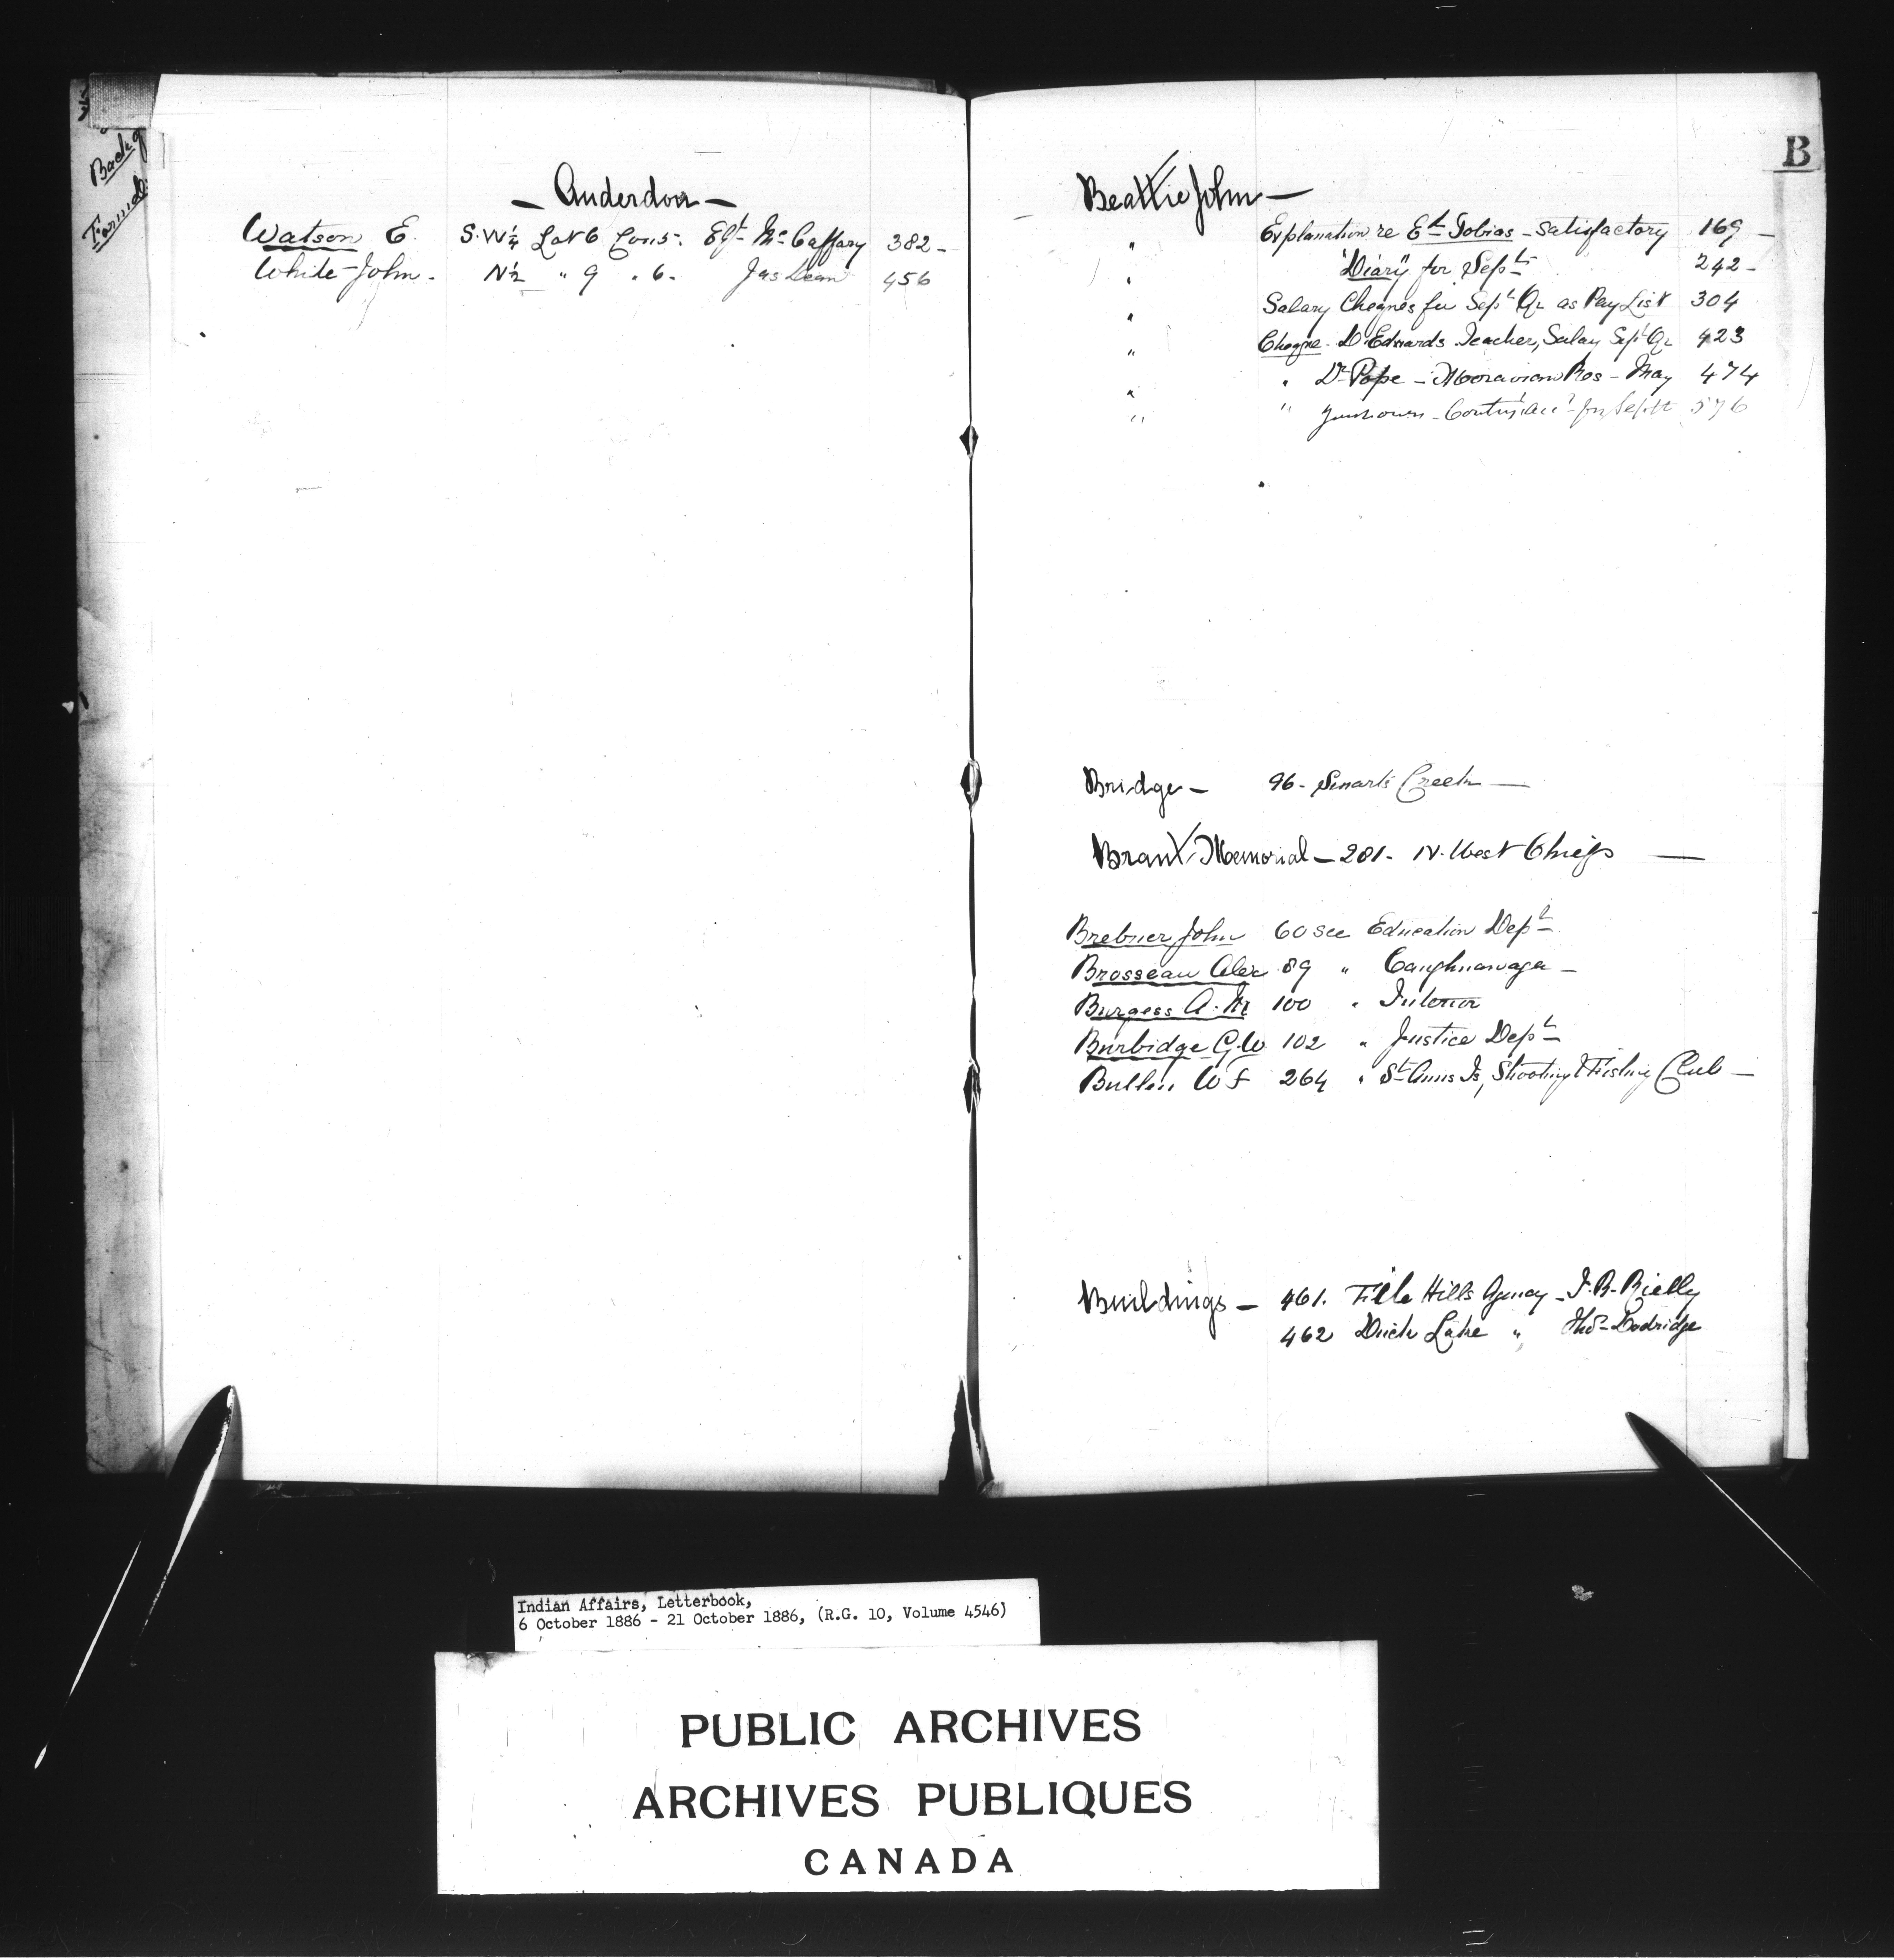 Back of
Farmd.
— Anderdon —
Watson E. S.W¼ Lot 6 Con 5. Egt. McCaffary 382 -
White John. N½ " 9 " 6. Jas Dean 456
B
Beattie John —
" Explanation re Et Tobias - Satisfactory 169 -
" "Diary" for Sept 242 -
" Salary Cheques for Sept Qr as Pay List 304
" Cheque - D Edwards Teacher, Salary Sept Qr 423
" " Dr Pope - Moravian Res - May 474
" " for Sept 576
Bridge — 96 - Smarts Creek —
Brant Memorial — 281 - N. West Chiefs —
Brebner John 60 see Education Dept
Brosseau Alex 89 " Caughnawaga -
Burgess A. M 100 " Interior
Burbidge G.W 102 " Justice Dept
Bullen W F 264 " St Anns Is, Shooting & Fishing Club -
Buildings — 461. File Hills Agency - J. R. Rielly
462 Duck Lake " Thos Dodridge
Indian Affairs, Letterbook,
6 October 1886 - 21 October 1886, (R.G. 10, Volume 4546)
PUBLIC ARCHIVES
ARCHIVES PUBLIQUES
CANADA